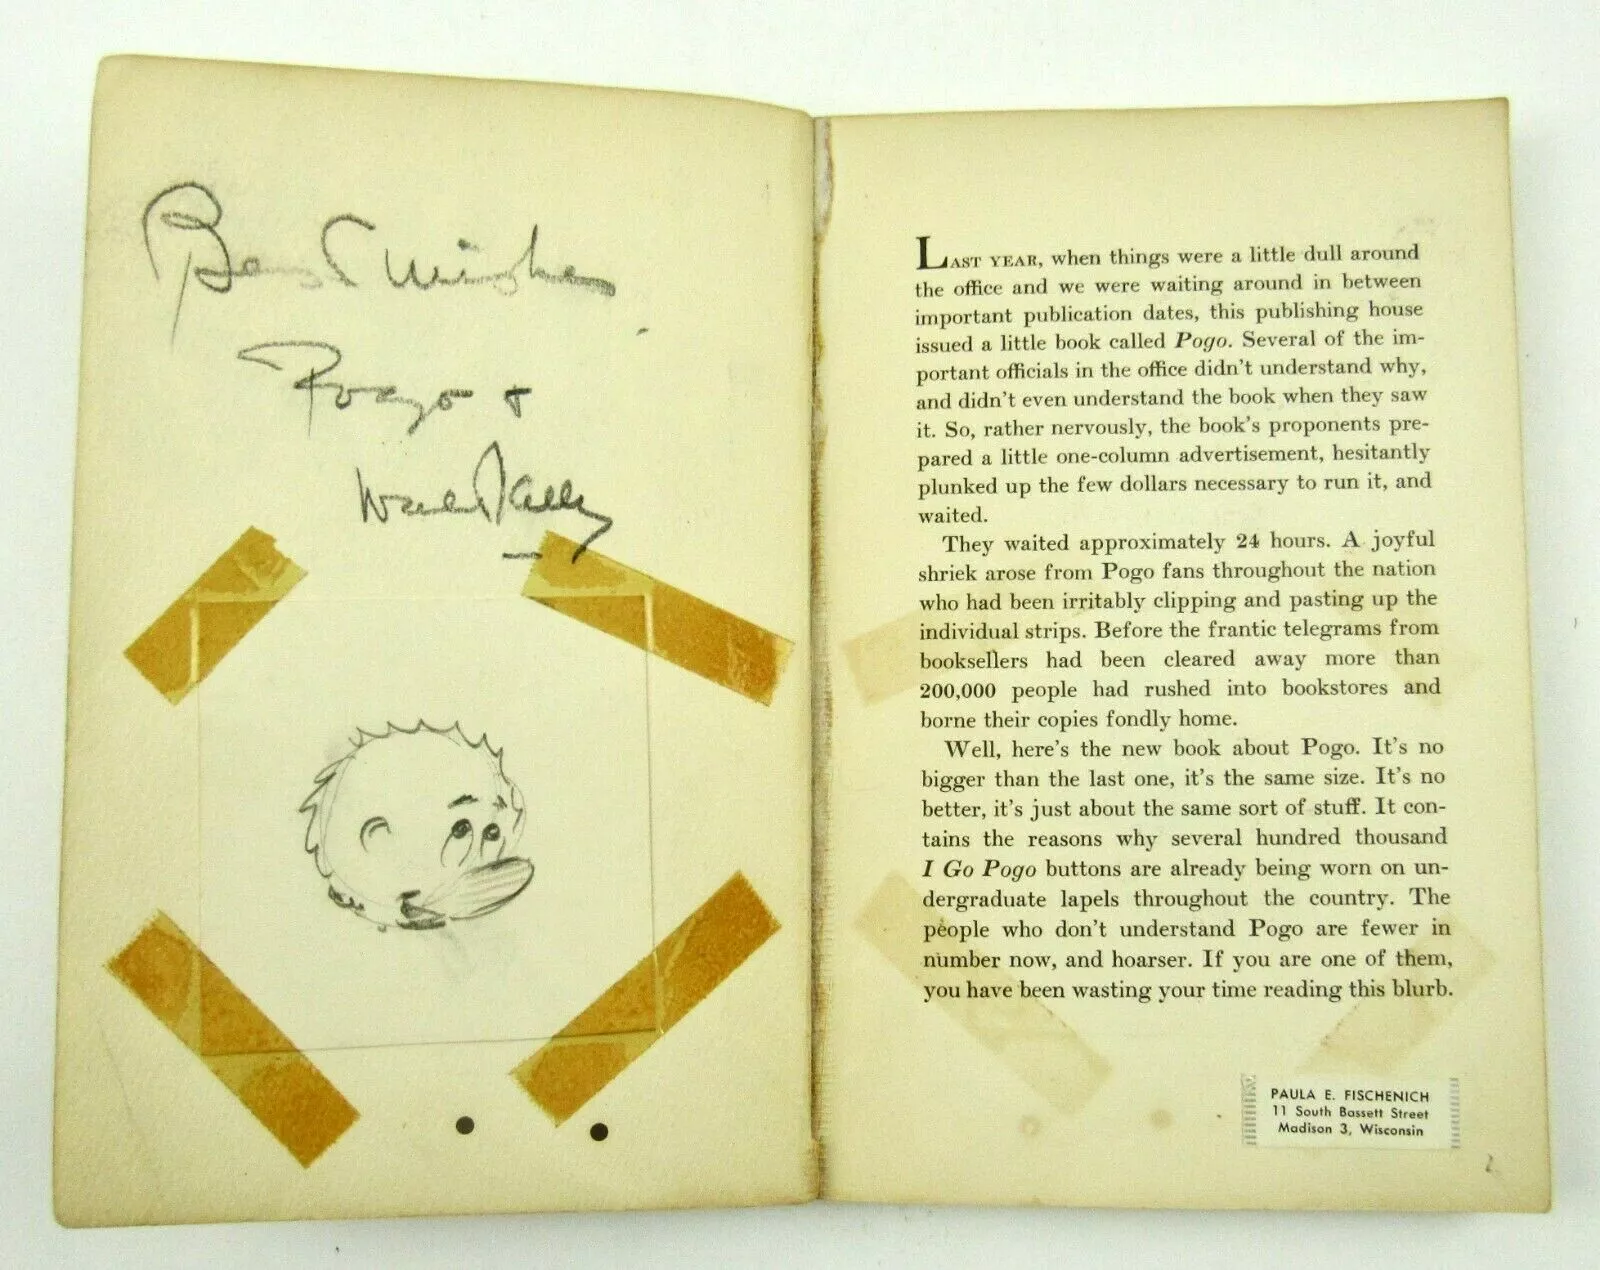 Best Wishes
Pogo +
Walt Kelly
LAST YEAR, when things were a little dull around
the office and we were waiting around in between
important publication dates, this publishing house
issued a little book called Pogo. Several of the im-
portant officials in the office didn't understand why,
and didn't even understand the book when they saw
it. So, rather nervously, the book's proponents pre-
pared a little one-column advertisement, hesitantly
plunked up the few dollars necessary to run it, and
waited.
They waited approximately 24 hours. A joyful
shriek arose from Pogo fans throughout the nation
who had been irritably clipping and pasting up the
individual strips. Before the frantic telegrams from
booksellers had been cleared away more than
200,000 people had rushed into bookstores and
borne their copies fondly home.
Well, here's the new book about Pogo. It's no
bigger than the last one, it's the same size. It's no
better, it's just about the same sort of stuff. It con-
tains the reasons why several hundred thousand
I Go Pogo buttons are already being worn on un-
dergraduate lapels throughout the country. The
people who don't understand Pogo are fewer in
number now, and hoarser. If you are one of them,
you have been wasting your time reading this blurb.
PAULA E. FISCHENICH
11 South Bassett Street
Madison 3, Wisconsin